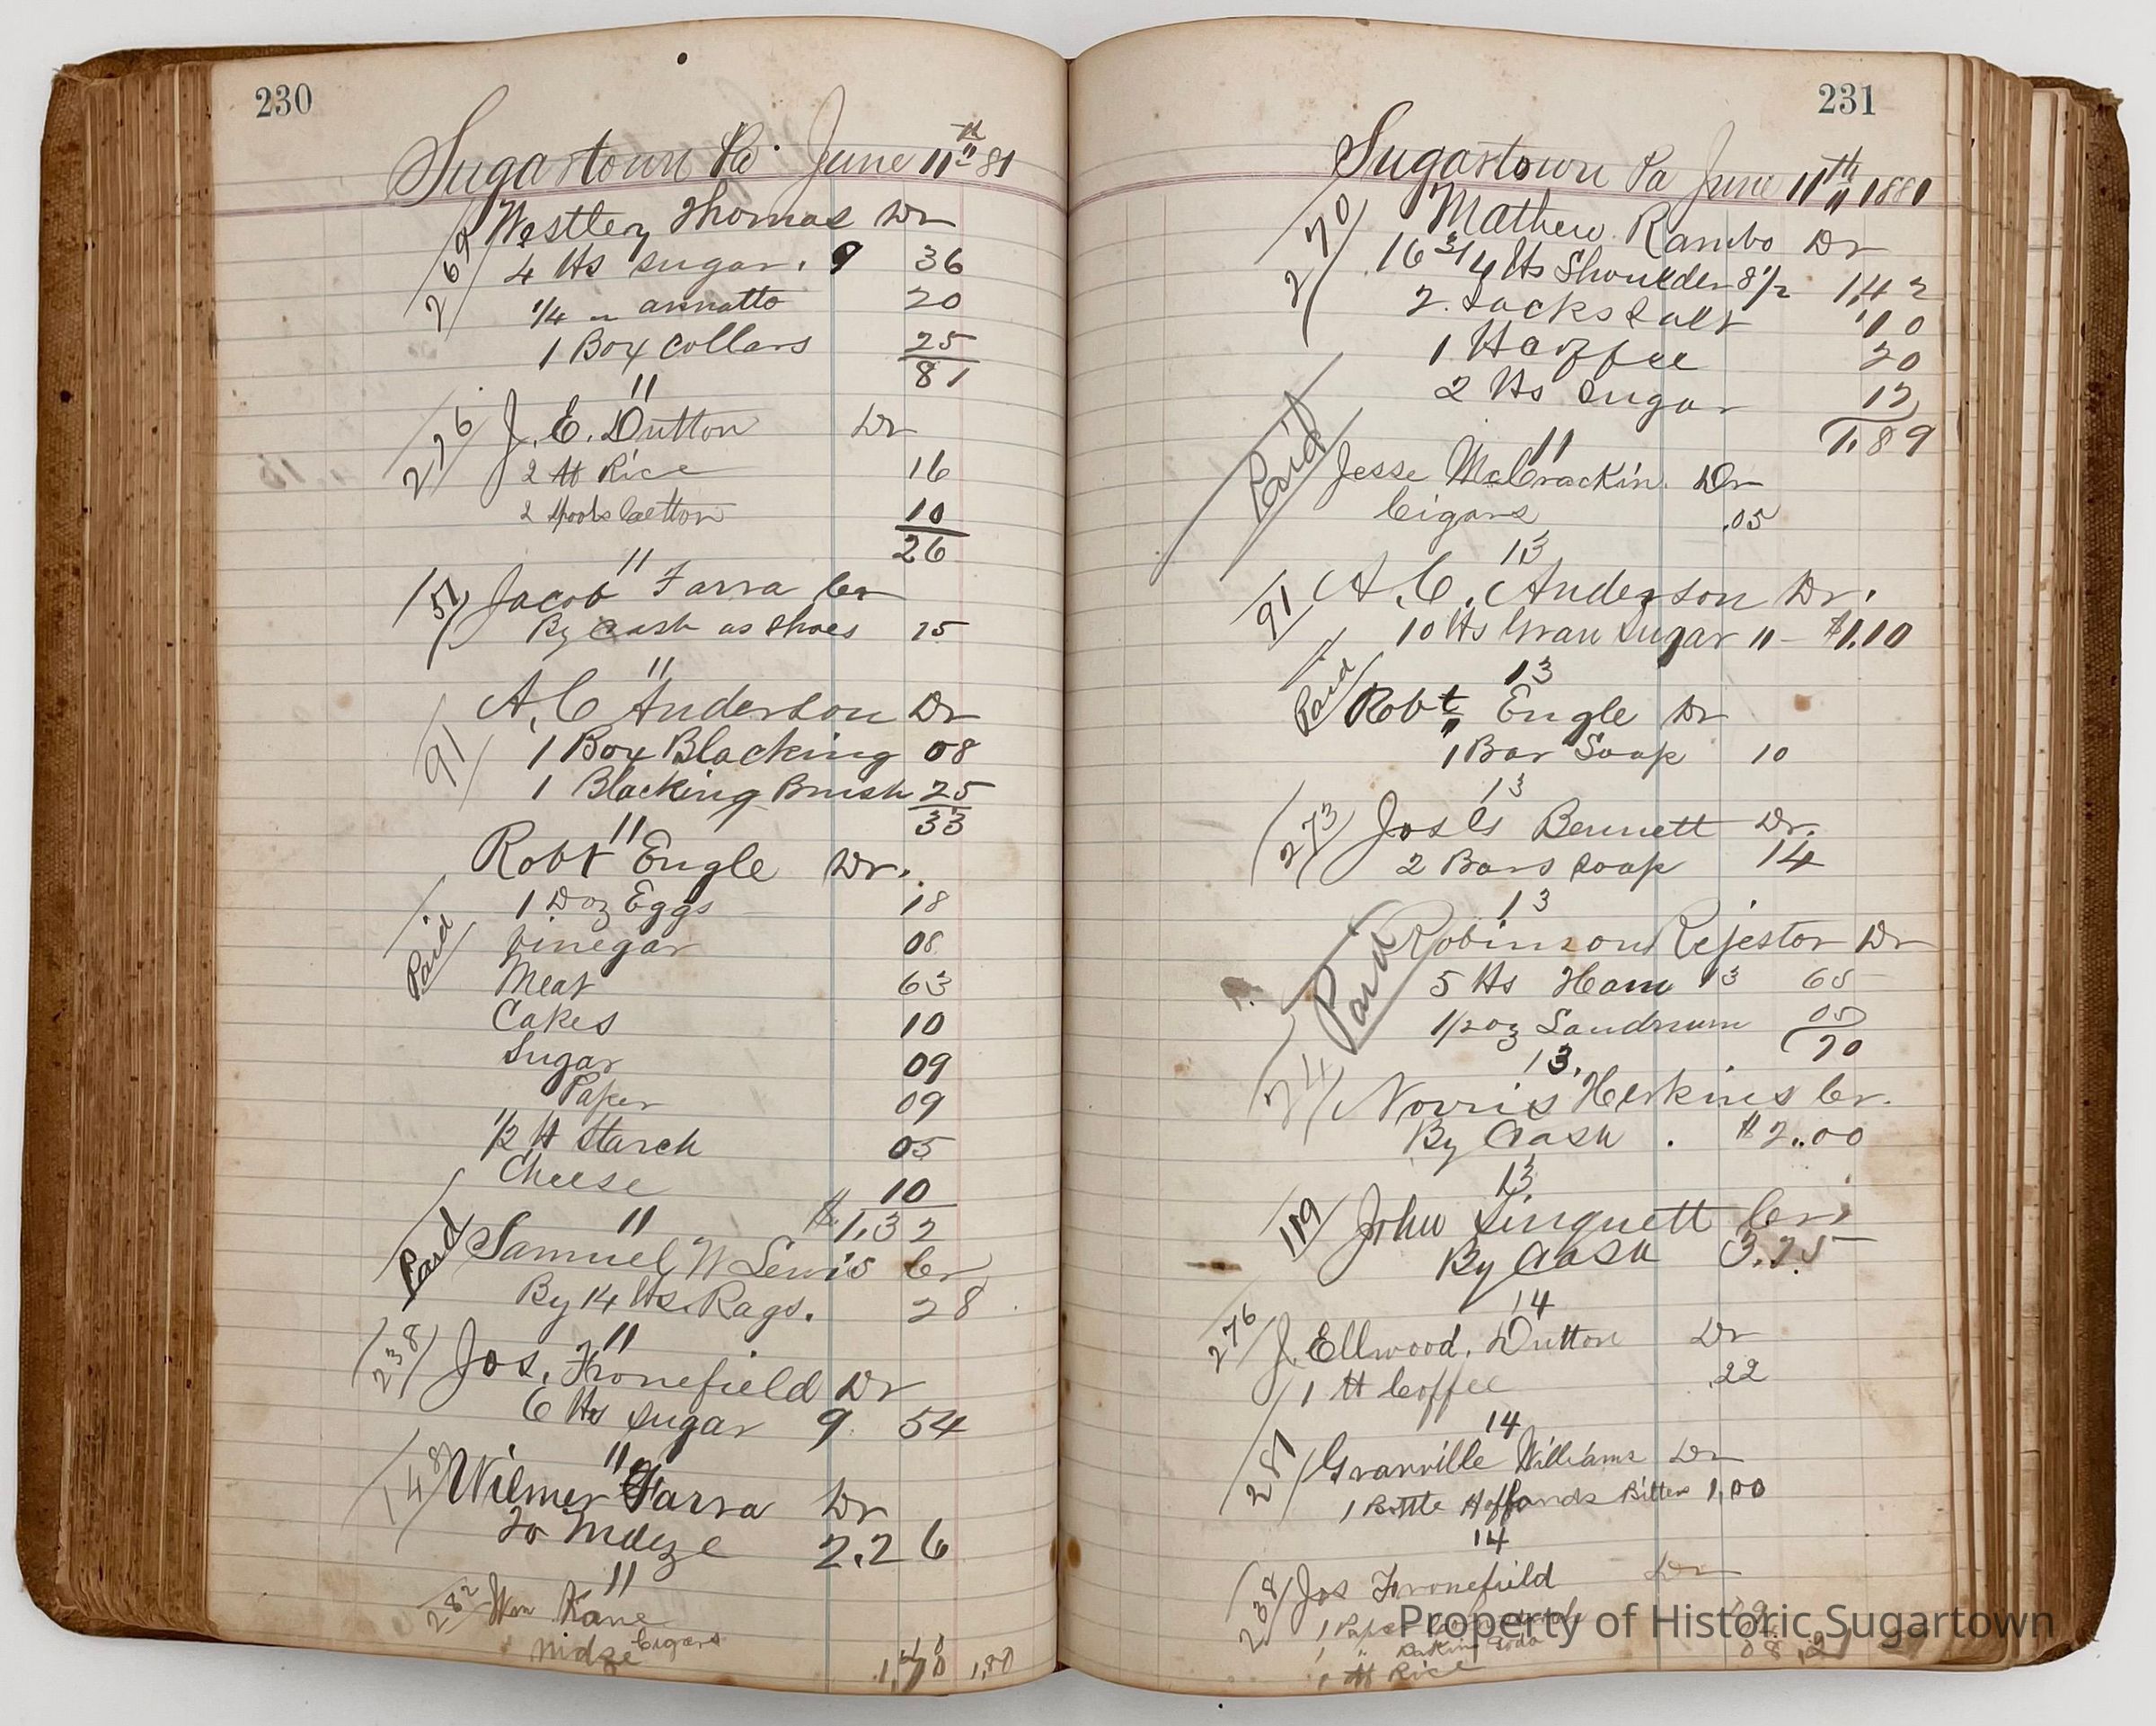 230
Sugartown Pa. June 11th 81
269 Westley Thomas Dr
4 lbs sugar. 9 36
1/4 " annatto 20
1 Box Collars 25
81
11
276 J. E. Dutton Dr
2 lb Rice 16
2 Spools Cotton 10
26
11
151 Jacob Farra Cr
By Cash as Shoes 75
11
A. C Anderson Dr
91 1 Box Blacking 08
1 Blacking Brush 25
33
11
Robt Engle Dr.
1 Doz Eggs 18
Paid Vinegar 08
Meat 63
Cakes 10
Sugar 09
Paper 09
1/2 lb Starch 05
Cheese 10
11 $1.32
Paid Samuel W Lewis Cr
By 14 lbs Rags. 28
11
238 Jos. Fronefield Dr
6 lbs sugar 9 54
11
148 Wilmer Farra Dr
To Mdze 2.26
11
282 Wm Kane
Mdze Cigars 1,80
231
Sugartown Pa June 11th 1881
270 Mathew Rambo Dr
16 3/4 lbs Shoulder 8 1/2 1,42
2 Sacks Salt 10
1 lb Coffee 20
2 lbs Sugar 17
1.89
11
Paid Jesse McCrackin. Dr
Cigars .05
13
91 A. C. Anderson Dr.
10 lbs Gran Sugar 11 - $1.10
13
Paid Robt Engle Dr
1 Bar Soap 10
13
273 Jos Bennett Dr.
2 Bars soap 14
13
Paid Robinson Rejestor Dr
5 lbs Ham 13 65
1/2 oz Laudnum 05
70
13.
74 Norris Herkins Cr.
By Cash . $2.00
13
119 John Linquett Cr.
By Cash 3.75
14
276 J. Ellwood. Dutton Dr
1 lb Coffee .22
14
281 Granville Williams Dr
1 Bottle Hoffands Bitters 1.00
14
238 Jos Fronefield Dr
1
1 " Baking Soda 08
1 lb Rice
Property of Historic Sugartown